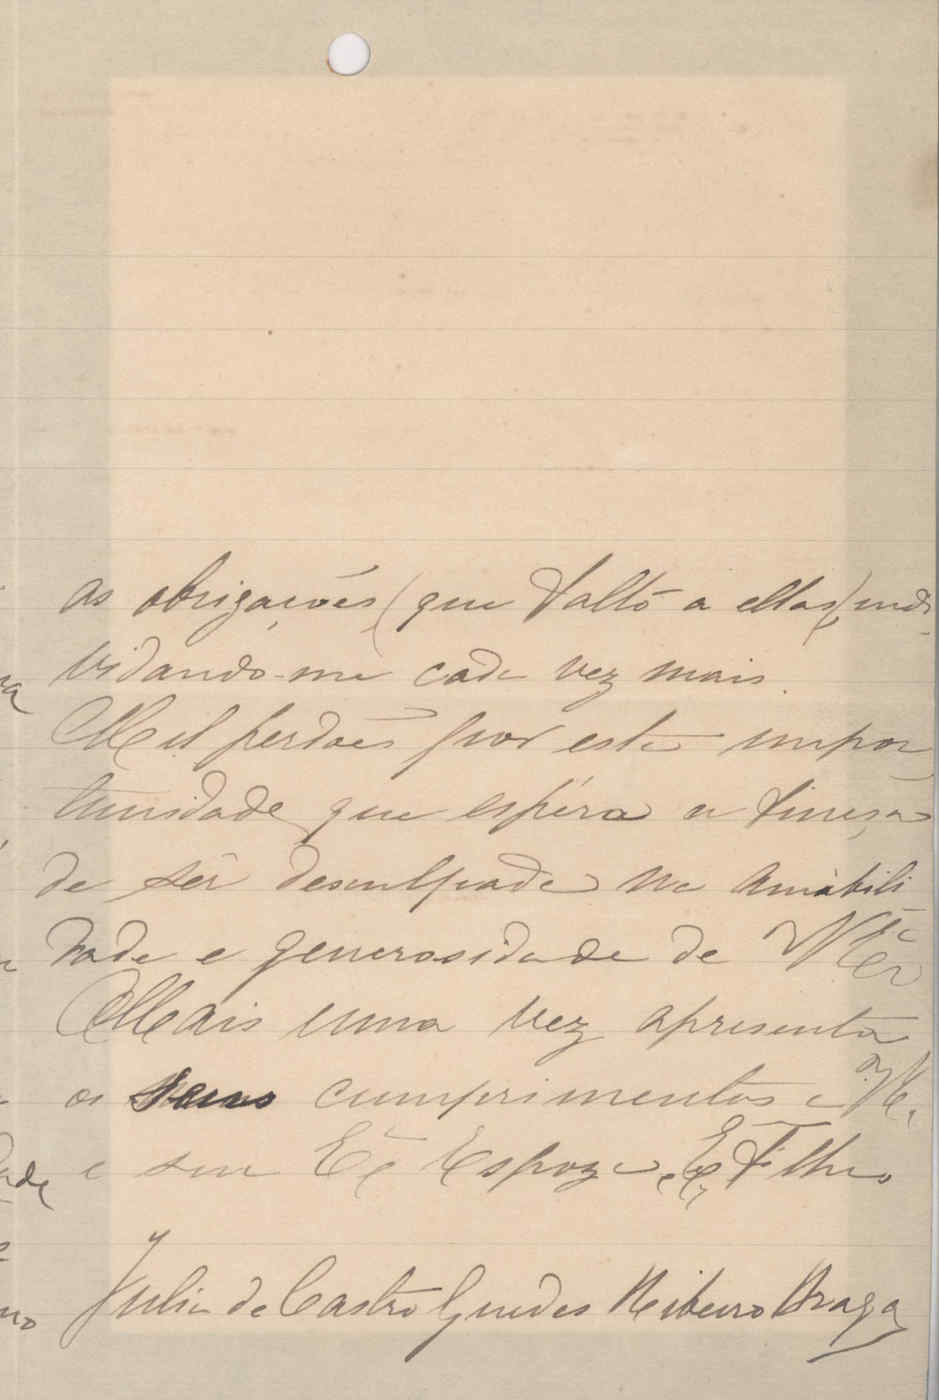 as obrigações (que falto a ellas) indi-
vidando-me cada vez mais.
Mil perdões por esta impor
tunidade, que espéra a fineza
de sêr desculpada na amabili
dade e generosidade de
Mais uma vez apresenta
os seus cumprimentos a
e sua Espoza, e Filhos
Julia de Castro Guedes Ribeiro Braga